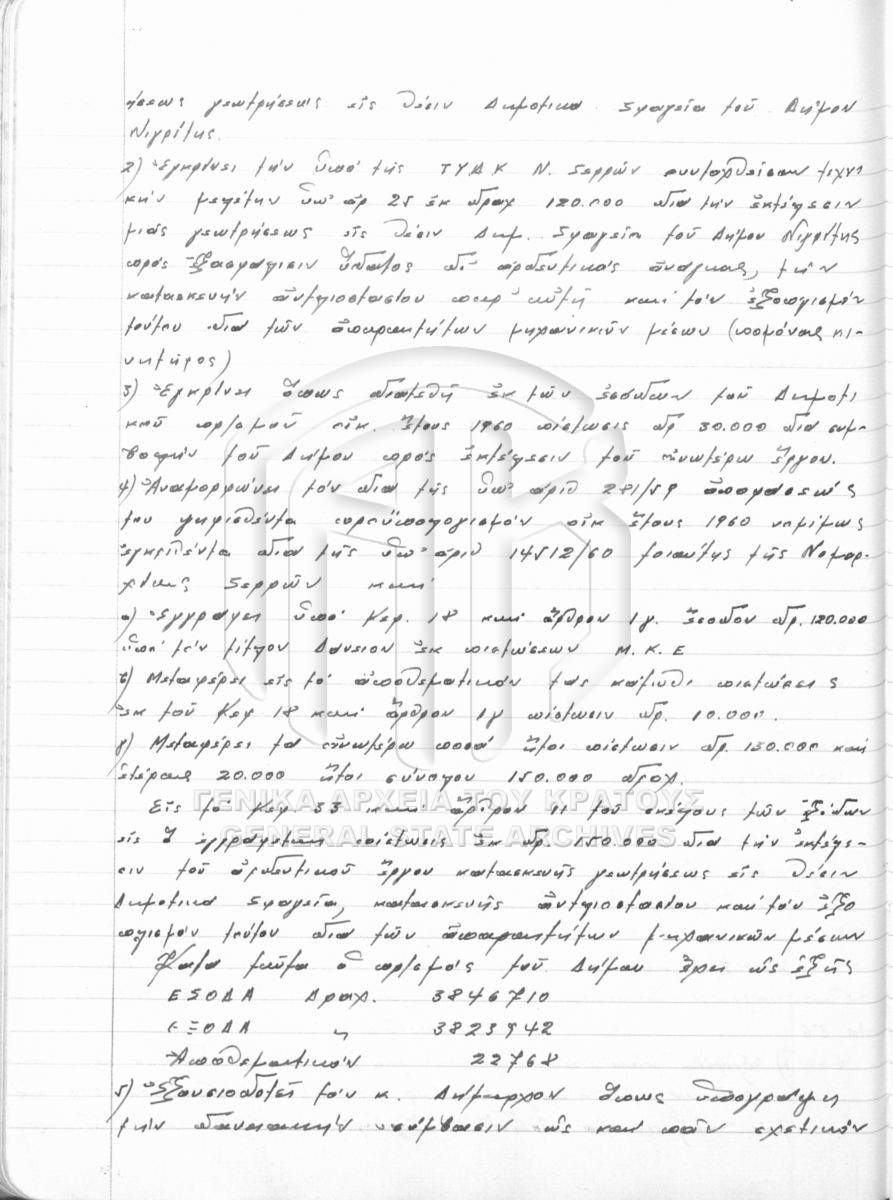 ήσεως γεωτρήσεως εἰς θέσιν Δημοτικὰ Σφαγεῖα τοῦ Δήμου
Νιγρίτης.
2) Ἐγκρίνει τὴν ὑπὸ τῆς ΤΥΔΚ Ν. Σερρῶν συνταχθεῖσαν τεχνι
κὴν μελέτην ὑπ' ἀρ 25 ἐκ δραχ 120.000 διὰ τὴν ἐκτέλεσιν
μιᾶς γεωτρήσεως εἰς θέσιν Δημ. Σφαγεῖα τοῦ Δήμου Νιγρίτης
πρὸς ἐξασφάλισιν ὕδατος δι' ἀρδευτικὰς ἀνάγκας, τὴν
κατασκευὴν ἀντλιοστασίου παρ' αὐτῇ καὶ τὸν ἐξοπλισμὸν
τούτου διὰ τῶν ἀπαραιτήτων μηχανικῶν μέσων (πομόνας κι-
νητῆρος)
3) Ἐγκρίνει ὅπως διατεθῇ ἐκ τῶν ἐσόδων τοῦ Δημοτι
κοῦ πρ/σμοῦ οἰκ. ἔτους 1960 πίστωσις δρ 30.000 διὰ συμ-
βολὴν τοῦ Δήμου πρὸς ἐκτέλεσιν τοῦ ἀνωτέρω ἔργου.
4) Ἀναμορφώνει τὸν διὰ τῆς ὑπ' ἀριθ 281/59 ἀποφάσεώς
του ψηφισθέντα προϋπολογισμὸν οἰκ ἔτους 1960 νομίμως
ἐγκριθέντα διὰ τῆς ὑπ' ἀριθ 14512/60 τοιαύτης τῆς Νομαρ-
χίας Σερρῶν καὶ
α) Ἐγγράφει ὑπὸ Κεφ. 18 καὶ ἄρθρον 1γ. ἔσοδον δρ. 120.000
ὑπὸ τὸν τίτλον Δάνειον ἐκ πιστώσεων Μ. Κ. Ε
β) Μεταφέρει εἰς τὸ ἀποθεματικὸν τὰς κάτωθι πιστώσεις
ἐκ τοῦ Κεφ 18 καὶ ἄρθρον 1γ πίστωσιν δρ. 10.000.
γ) Μεταφέρει τὰ ἀνωτέρω ποσὰ ἤτοι πίστωσιν δρ. 130.000 καὶ
ἑτέρας 20.000 ἤτοι σύνολον 150.000 δραχ.
Εἰς τὸ Κεφ 33 καὶ ἄρθρον 11 τοῦ σκέλους τῶν ἐξόδων
εἰς ὃ ἐγγράφεται πίστωσις ἐκ δρ. 150.000 διὰ τὴν ἐκτέλε-
σιν τοῦ ἀρδευτικοῦ ἔργου κατασκευῆς γεωτρήσεως εἰς θέσιν
Δημοτικὰ Σφαγεῖα, κατασκευῆς ἀντλιοστασίου καὶ τὸν ἐξο
πλισμὸν τούτου διὰ τῶν ἀπαραιτήτων μηχανικῶν μέσων
Κατὰ ταῦτα ὁ πρ/σμὸς τοῦ Δήμου ἔχει ὡς ἑξῆς
ΕΣΟΔΑ Δραχ. 3846710
ΕΞΟΔΑ " 3823942
Ἀποθεματικὸν 22768
5) Ἐξουσιοδοτεῖ τὸν κ. Δήμαρχον ὅπως ὑπογράψῃ
τὴν δανειακὴν σύμβασιν ὡς καὶ πᾶν σχετικὸν
ΓΕΝΙΚΑ ΑΡΧΕΙΑ ΤΟΥ ΚΡΑΤΟΥΣ
GENERAL STATE ARCHIVES